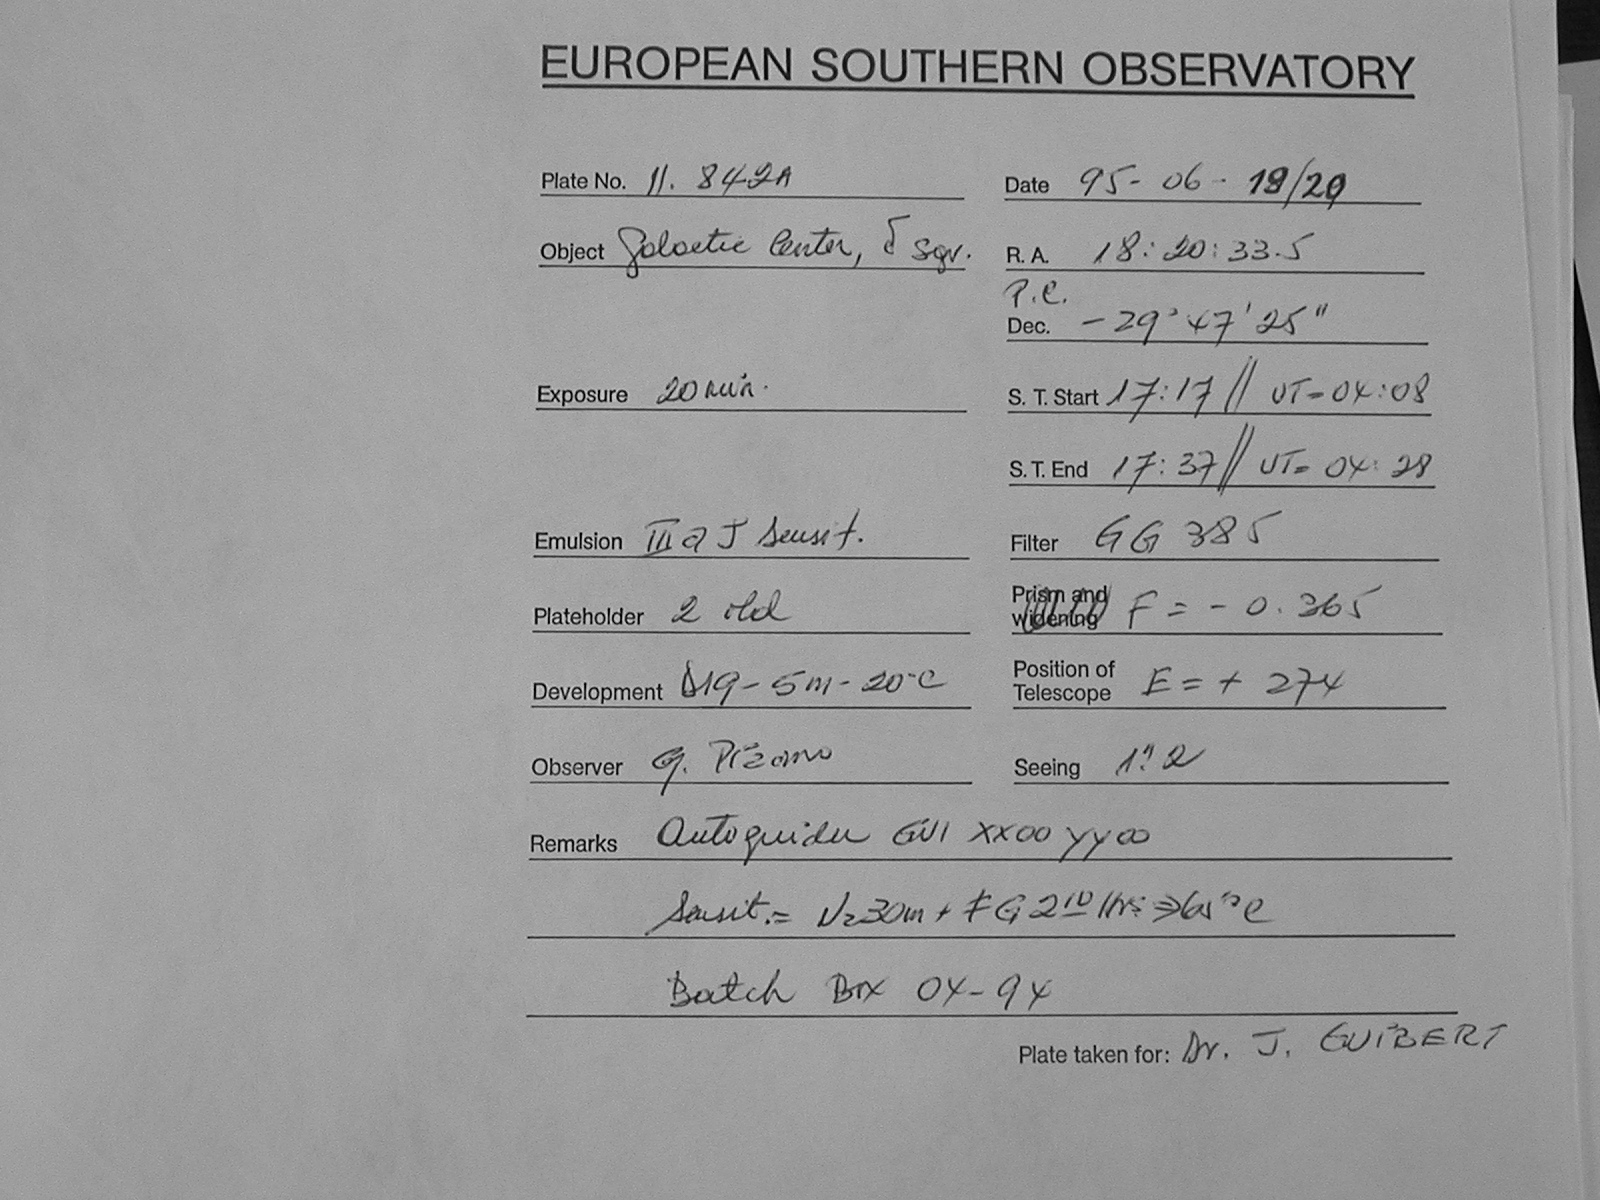 EUROPEAN SOUTHERN OBSERVATORY
Plate No. 11. 842A Date 95-06-19/20
Object Galactic Center, δ Sgr. R. A. 18:20:33.5
P.C.
Dec. -29° 47' 25"
Exposure 20 min. S. T. Start 17:17 // UT=04:08
S. T. End 17:37 // UT= 04:28
Emulsion III a J Sensit. Filter GG 385
Plateholder 2 old Prism and widening F = - 0.365
Development D19-5m-20°C Position of Telescope E = + 274
Observer G. Pizarro Seeing 1".2
Remarks Autoguider GV1 XX00 YY00
Sensit.= N=30m + FG 2 hrs 65°C
Batch Box 04-94
Plate taken for: Dr. J. GUIBERT